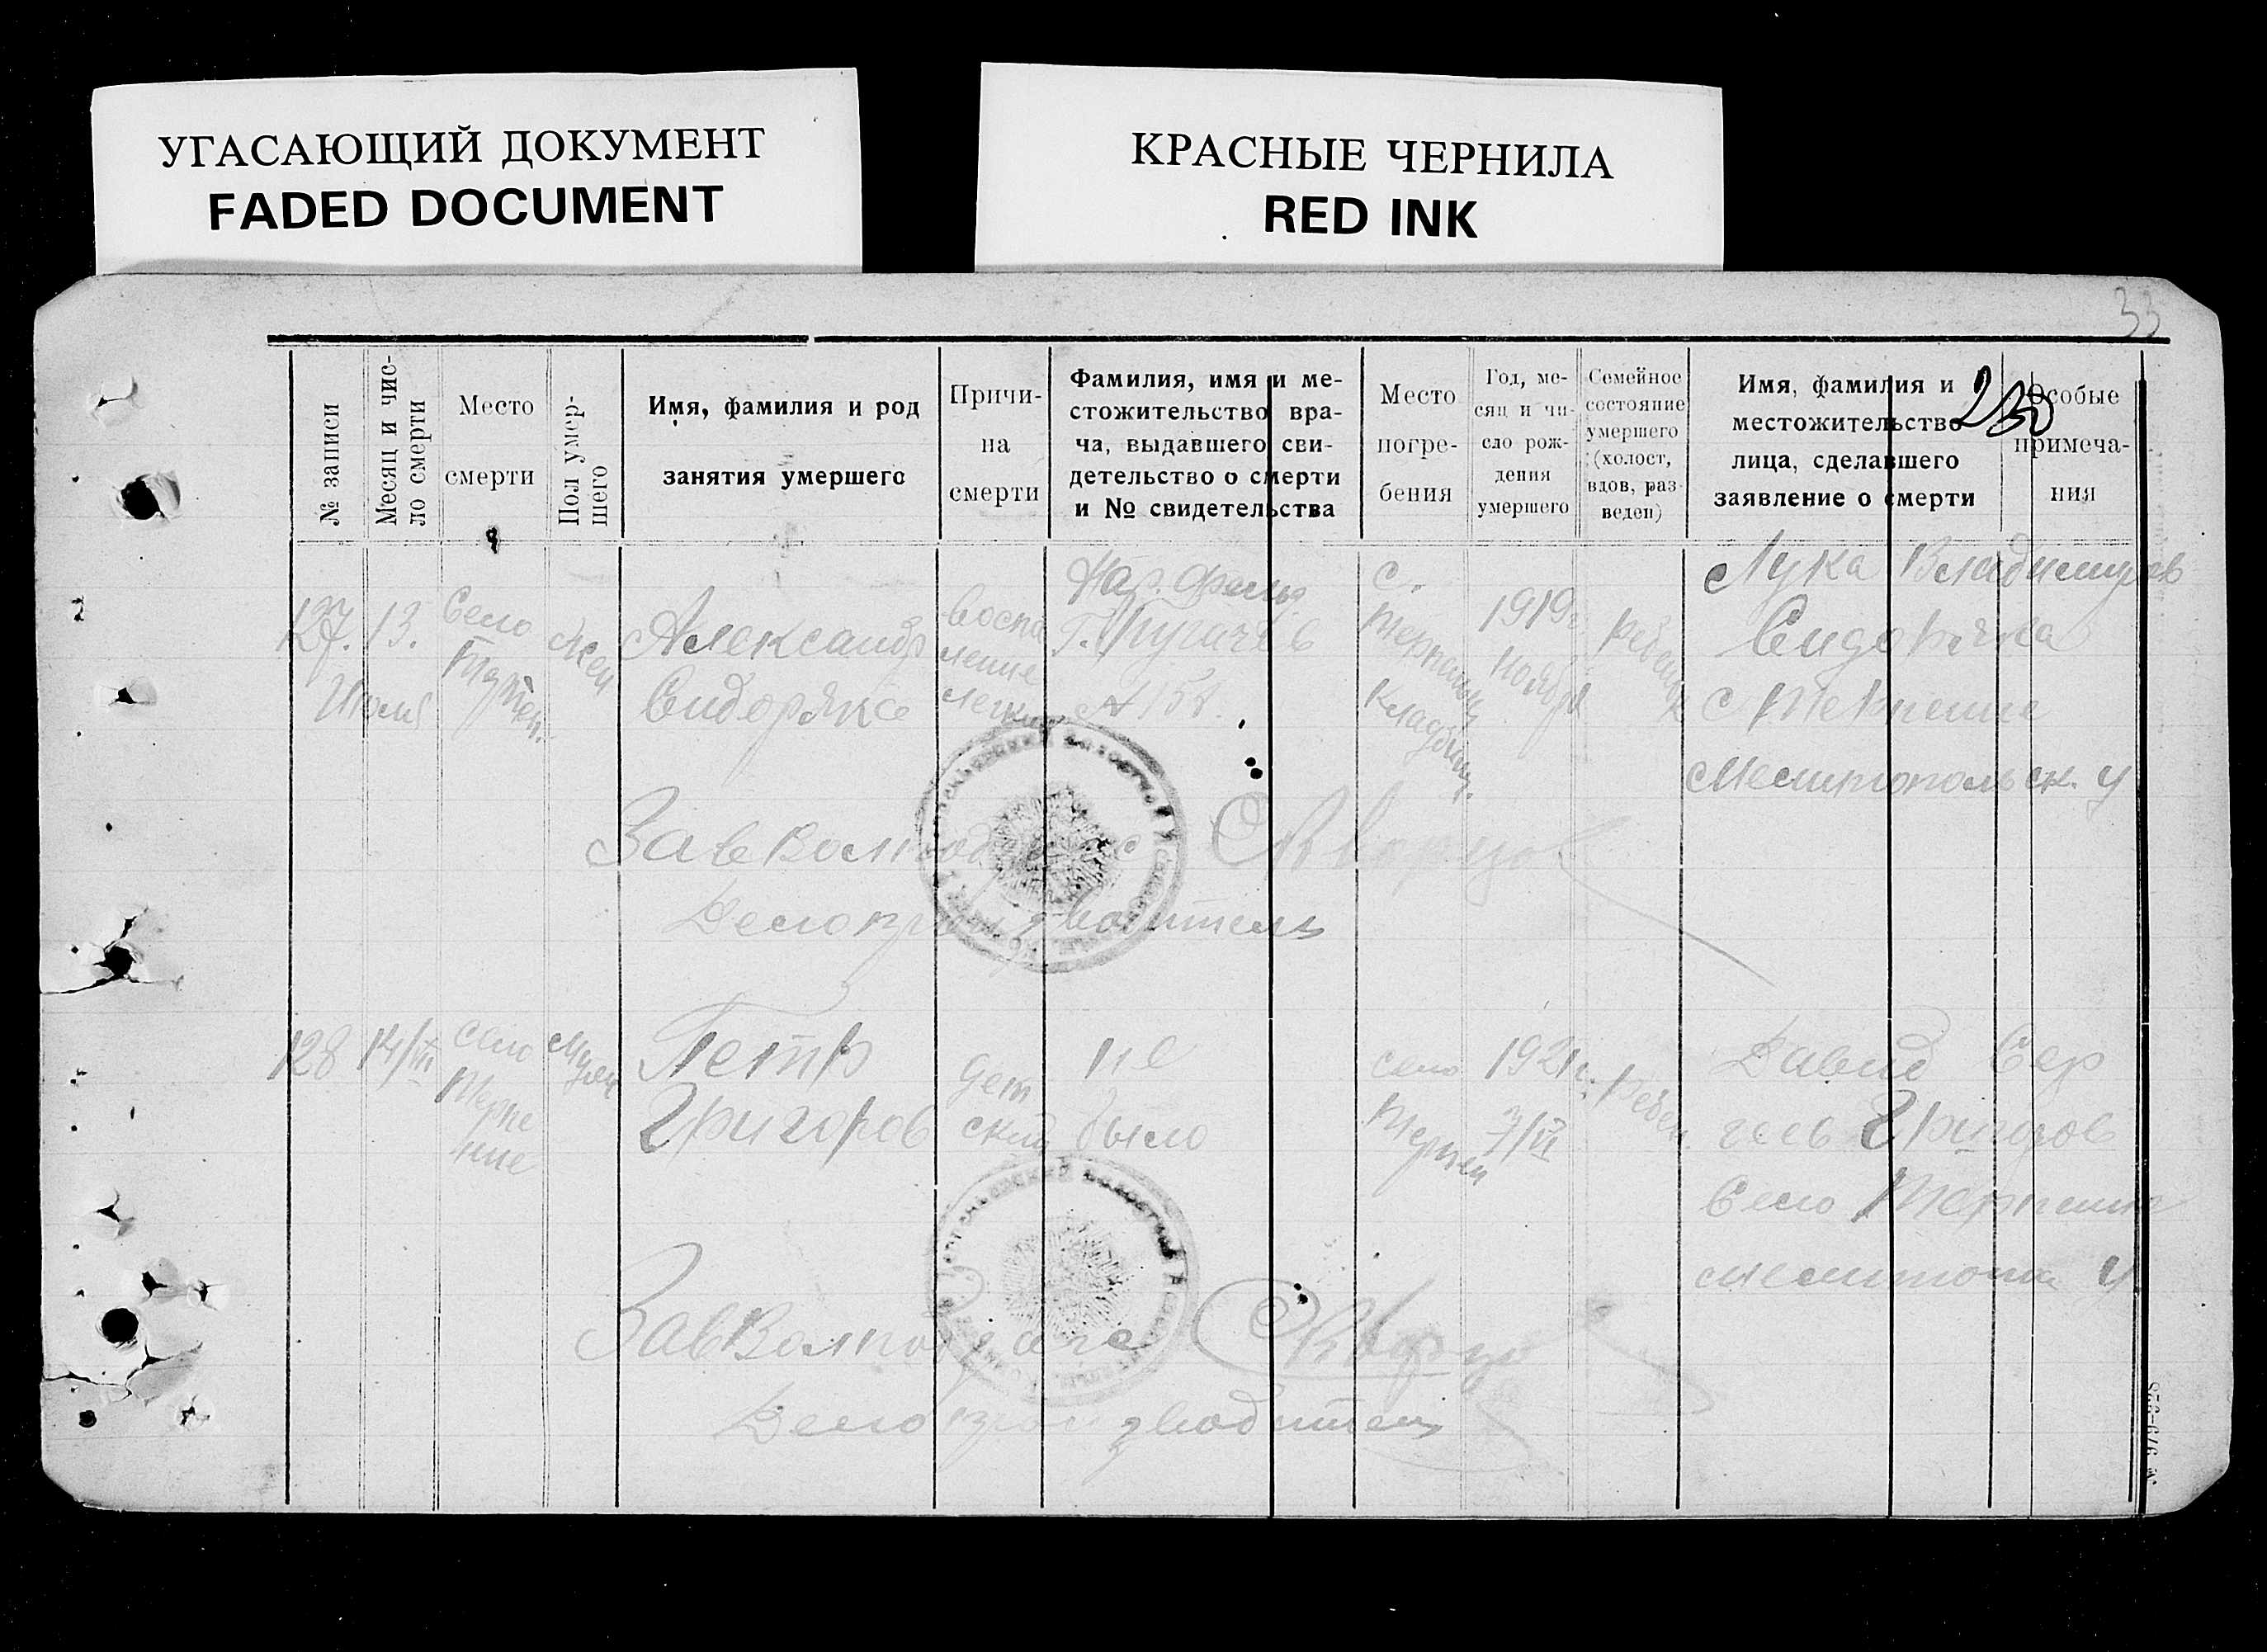 УГАСАЮЩИЙ ДОКУМЕНТ
FADED DOCUMENT
КРАСНЫЕ ЧЕРНИЛА
RED INK
33
230
№ записи
Месяц и чис-
ло смерти
Место
смерти
Пол умер-
шего
Имя, фамилия и род
занятия умершего
Причи-
на
смерти
Фамилия, имя и ме-
стожительство вра-
ча, выдавшего сви-
детельство о смерти
и № свидетельства
Место
погре-
бения
Год, ме-
сяц и чи-
сло рож-
дения
умершего
Семейное
состояние
умершего
(холост,
вдов, раз-
веден)
Имя, фамилия и
местожительство
лица, сделавшего
заявление о смерти
Особые
примеча-
ния
127.
13.
Июля
Село
жен
Александр
Сидоряка
воспа
ление
легких
Г. Пугачев
с.
Терпение
Кладбищ.
1919г
Ноября
Ребенок
Лука Владимиров
Сидоряка
с Терпение
Мелитопольск. у
Завволподотде Скворцов
Делопроизводитель
128
14/VII
село
Терпе
ние
Муж
Петр
Григоров
дет
ский
не
было
село
Терпен
1921г.
7/VI
Ребен
Давид Сер
геев Григоров
Село Терпение
Мелитоп у
Скворцо
Делопроизводител
№ 979-328